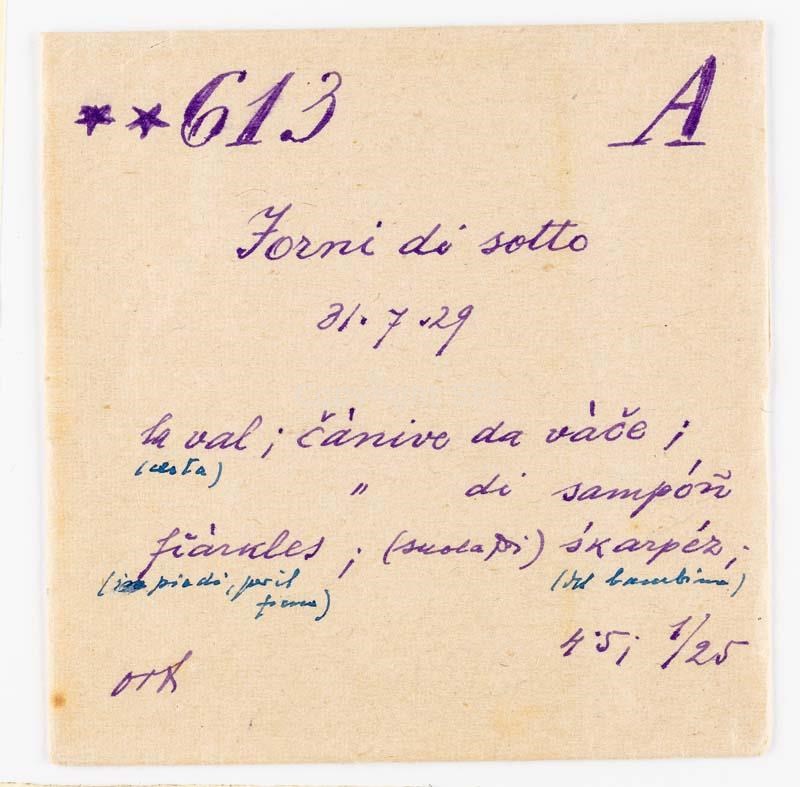 **613 A
Forni di sotto
31.7.29
la val; čánive da váče;
(cesta)
" di sampóñ
fiárkles; (scolapi) śkarpéz;
piedi, per il
fieno) (del bambino)
4.5; 1/25
ort